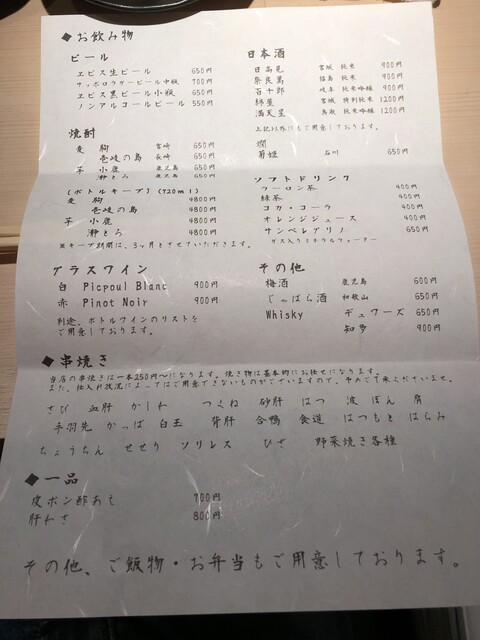 ◆お飲み物
ビール
ヱビス生ビール 650円
サッポロラガービール中瓶 700円
ヱビス黒ビール小瓶 650円
ノンアルコールビール 550円
焼酎
麦 駒 宮崎 650円
壱岐の島 長崎 650円
芋 小鹿 鹿児島 650円
鶴とろ 鹿児島 650円
(ボトルキープ)(720ml)
麦 駒 4800円
壱岐の島 4800円
芋 小鹿 4800円
4800円
※キープ期間は、3ヶ月とさせていただきます。
グラスワイン
白 Picpoul Blanc 900円
赤 Pinot Noir 900円
別途、ボトルワインのリストを
ご用意しております。
日本酒
日高見 宮城 純米 900円
奈良萬 福島 純米 900円
百十郎 岐阜 純米吟醸 900円
綿屋 宮城 特別純米 1200円
満天星 鳥取 純米吟醸 1200円
上記以外にもご用意しております。
燗
菊姫 石川 650円
ソフトドリンク
ウーロン茶 400円
緑茶 400円
コカ・コーラ 400円
オレンジジュース 400円
サンペレグリノ 650円
ガス入りミネラルウォーター
その他
梅酒 鹿児島 600円
じゃばら酒 和歌山 650円
Whisky デュワーズ 650円
知多 900円
◆串焼き
当店の串焼きは一本250円〜になります。焼き物は基本的にお任せになります。
また、仕入れ状況によってはご用意できないものがございますので、予めご了承くださいませ。
さび 血肝 かしわ つくね 砂肝 はつ 波 ぼん 肩
手羽先 かっぱ 白玉 背肝 合鴨 食道 はつもと はらみ
ちょうちん せせり ソリレス ひざ 野菜焼き各種
◆一品
皮ポン酢あえ 700円
肝わさ 800円
その他、ご飯物・お弁当もご用意しております。